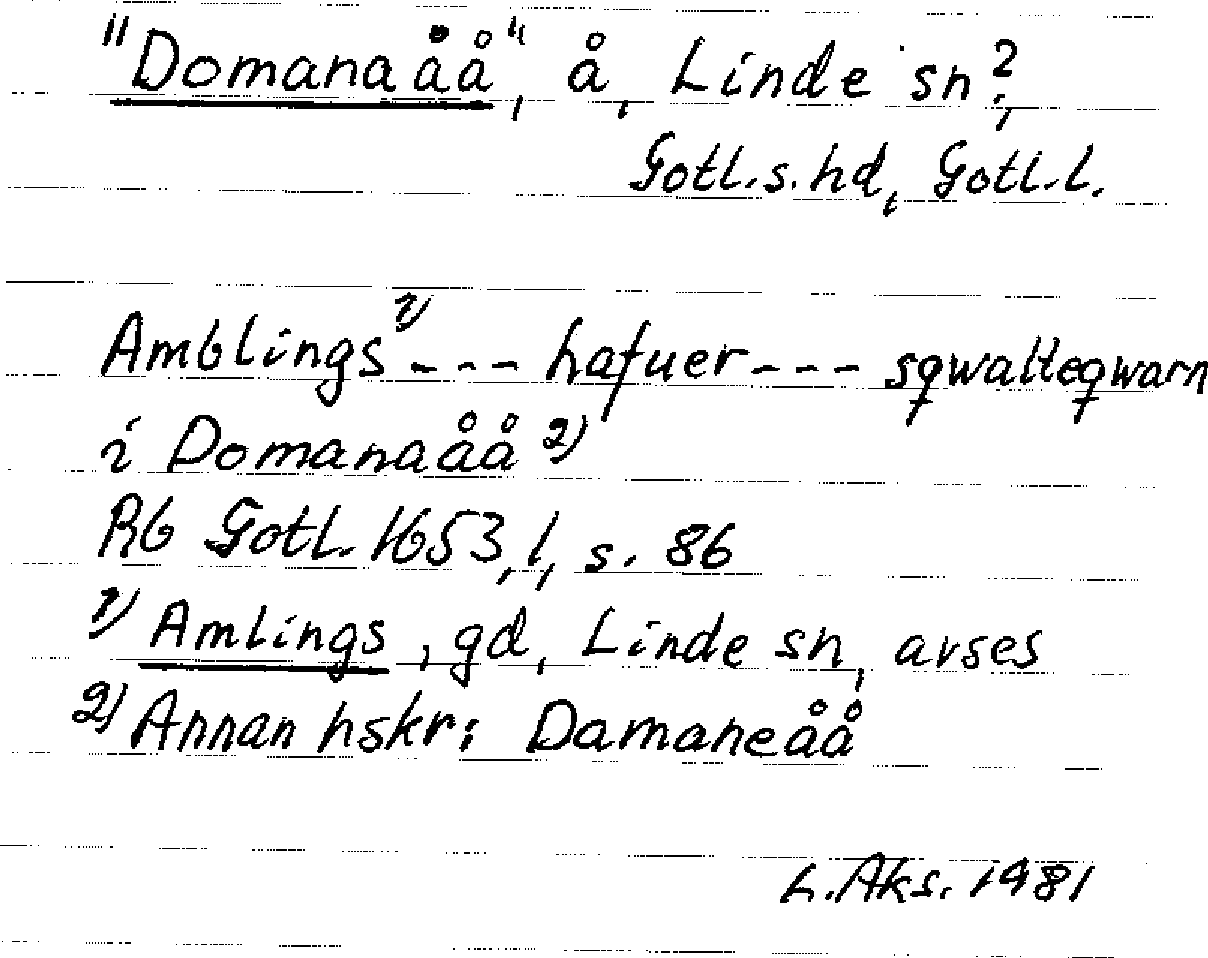 "Domanaåå", å, Linde sn?,
Gotl.s.hd, Gotl.l.
Amblings 1) --- hafuer --- sqwalteqwarn
i Domanaåå 2)
Rb Gotl. 1653, 1, s. 86
1) Amlings, gd, Linde sn, avses
2) Annan hskr: Damaneåå
L. Aks. 1981